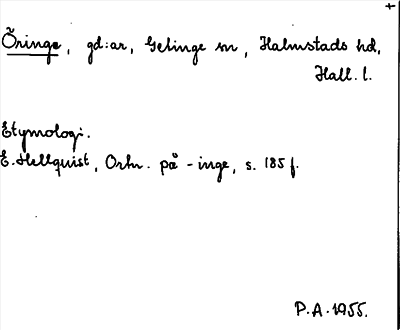 +
Öringe, gd:ar, Getinge sn, Halmstads hd,
Hall. l.
Etymologi.
E. Hellquist, Ortn. på -inge, s. 185 f.
P.A. 1955.